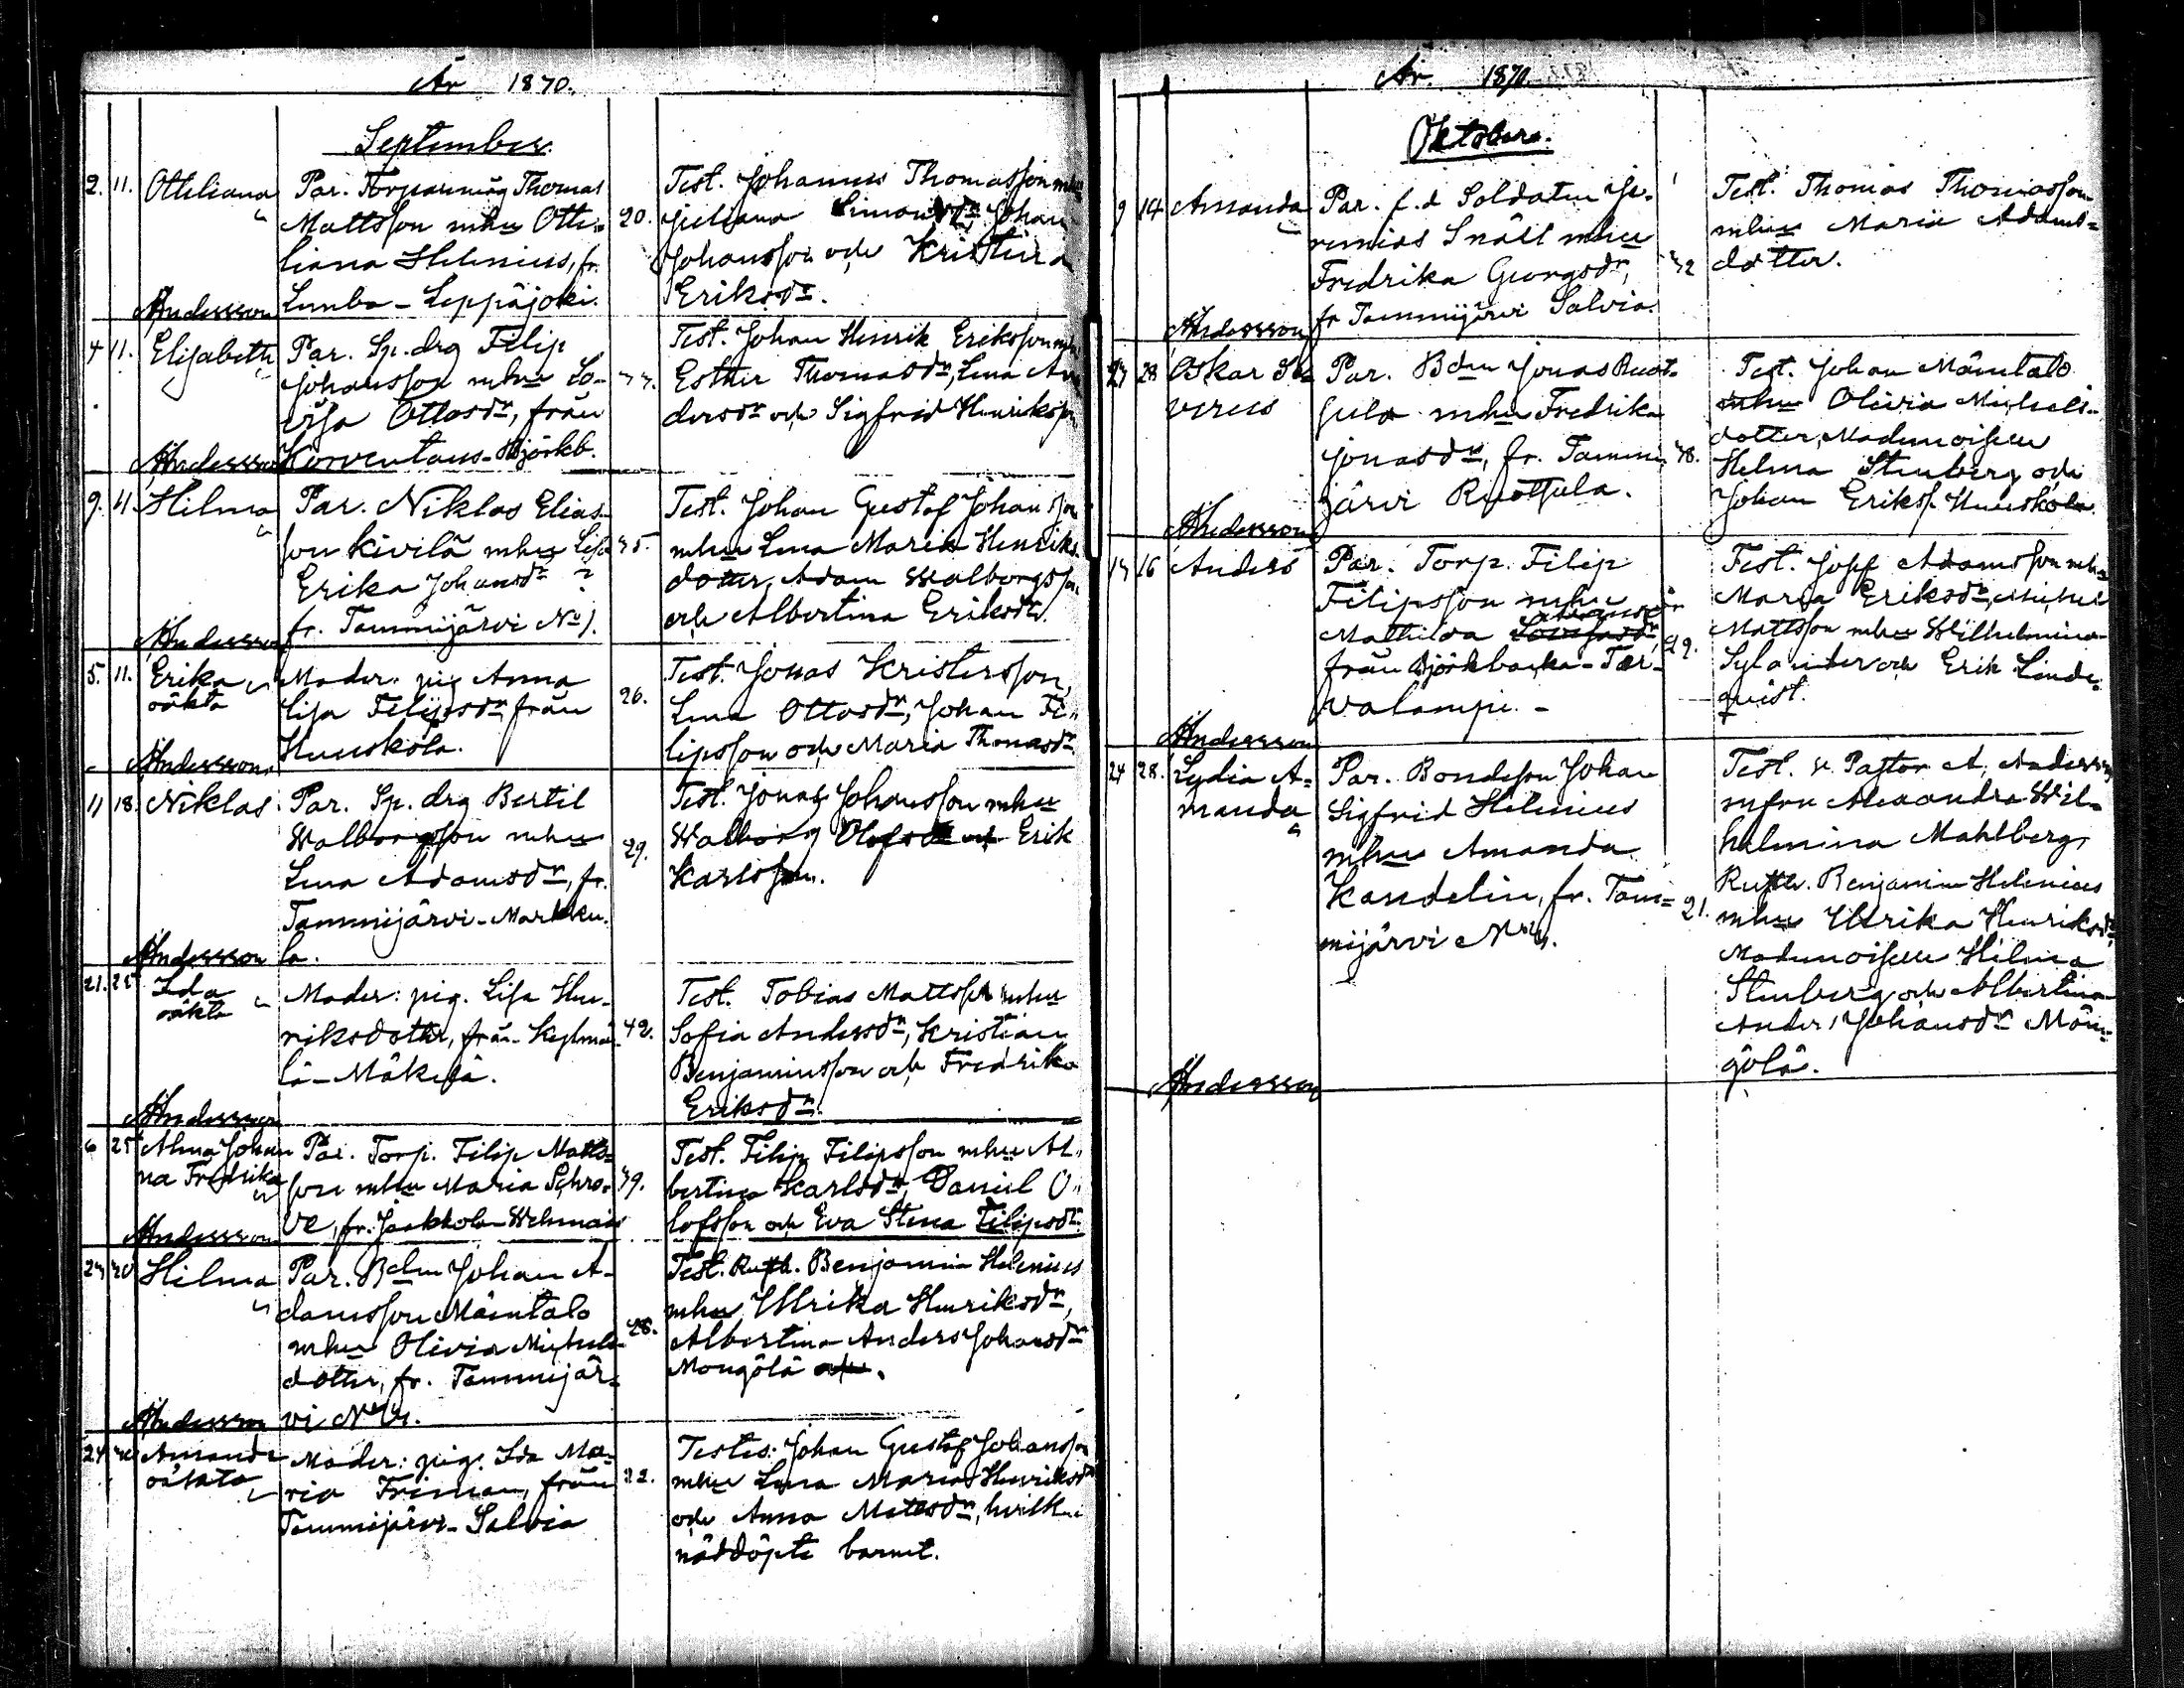 År 1870.
September
2. 11. Otteliana Par. Torparmåg Thomas
Mattsson mhu Otte-
liana Helenius, fr.
Andersson Lemba-Leppäjoki.
20.
Test. Johannes Thomasson mhu
Juliana Simonsdr, Johan
Johansson och Kristina
Eriksdr.
4 11. Elisabeth Par. Sp. drg Filip
Johansson mhu Lo-
visa Ottosdr, från
Andersson Korventaus-Björkb.
Test. Johan Henrik Eriksson mhu
Esther Thomasdr, Lena An-
dersdr och Sigfrid Henriksson
9. 11. Hilma Par. Niklas Elias-
son Kivilä mhu Lisa
Erika Johansdr
Andersson fr. Tammijärvi No 1.
35.
Test. Johan Gustaf Johansson
mhu Lena Maria Henriks-
dotter, Adam Walborgsson
och Albertina Eriksdr.
5. 11. Erika oäkta Moder: pig Anna
Lisa Filipsdr från
Andersson Huuskola.
26.
Test. Jonas Kristersson,
Lena Ottosdr, Johan Fi-
lipsson och Maria Thomasdr
11 18. Niklas Par. Sp. drg Bertil
Walborgsson mhu
Lena Adamsdr, fr.
Tammijärvi-Markku-
Andersson la.
29.
Test. Jonas Johansson mhu
Walborg Olofsdr och Erik
Karlsson.
21. 25 Ida oäkta Moder: pig. Lisa Hen-
riksdotter, från Kylmä-
lä-Mäkelä.
Andersson
42.
Test. Tobias Mattsson mhu
Sofia Andersdr, Kristian
Benjaminsson och Fredrika
Eriksdr.
6 25 Alma Johan-
na Fredrika
Andersson
Par. Torp. Filip Matts-
son mhu Maria Schro-
ve, fr. Jaakkola-Wehmais
39.
Test. Filip Filipsson mhu Al-
bertina Karlsdr, Daniel O-
lofsson och Eva Stina Filipsdr.
23 30 Hilma Par. Bdn Johan A-
damsson Mäentalo
mhu Olivia Michels-
dotter, fr. Tammijär-
Andersson vi
28.
Test. Rusth. Benjamin Helenius
mhu Ulrika Henriksdr,
Albertina Anders Johansdr
Mongölä och.
24 Amanda oäkata Moder: pig. Ida Ma-
ria Friman, från
Tammijärvi-Salvia
22.
Testes: Johan Gustaf Johansson
mhu Lena Maria Henriksdr
och Anna Mattsdr, hvilken
nöddöpte barnet.
År 1870.
Oktober.
9 14 Amanda Par. f.d Soldaten Je-
remias Snäll mhu
Fredrika Georgsdr,
Andersson fr Tammijärvi Salvia.
32
Test. Thomas Thomasson
mhu Maria Adams-
dotter.
23 28 Oskar Se-
verus
Par. Bdn Jonas Ruot-
sula mhu Fredrika
Jonasdr, fr. Tammi-
järvi Ruotsula.
Andersson
38.
Test. Johan Mäentalo
mhu Olivia Michels-
dotter, Mademoiselle
Helma Stenberg och
Johan Erikss. Huuskola.
13 16 Anders Par. Torp. Filip
Filipsson mhu
Mathilda
från Björkbacka-Ter-
valampi.
Andersson
29.
Test. Josef Adamsson mhu
Maria Eriksdr, Michel
Mattsson mhu Wilhelmina
Sylander och Erik Linde-
qvist.
24 28. Lydia A-
manda
Par. Bondeson Johan
Sigfrid Helenius
mhu Amanda
Kandelin, fr. Tam-
mijärvi
Andersson
21.
Test. v. Pastor A. Andersson
m fru Alexandra Wil-
helmina Mahlberg,
Rusth. Benjamin Helenius
mhu Ulrika Henriksdr,
Mademoiselle Hilma
Stenberg och Albertina
Anders Johansdr Mon-
gölä.